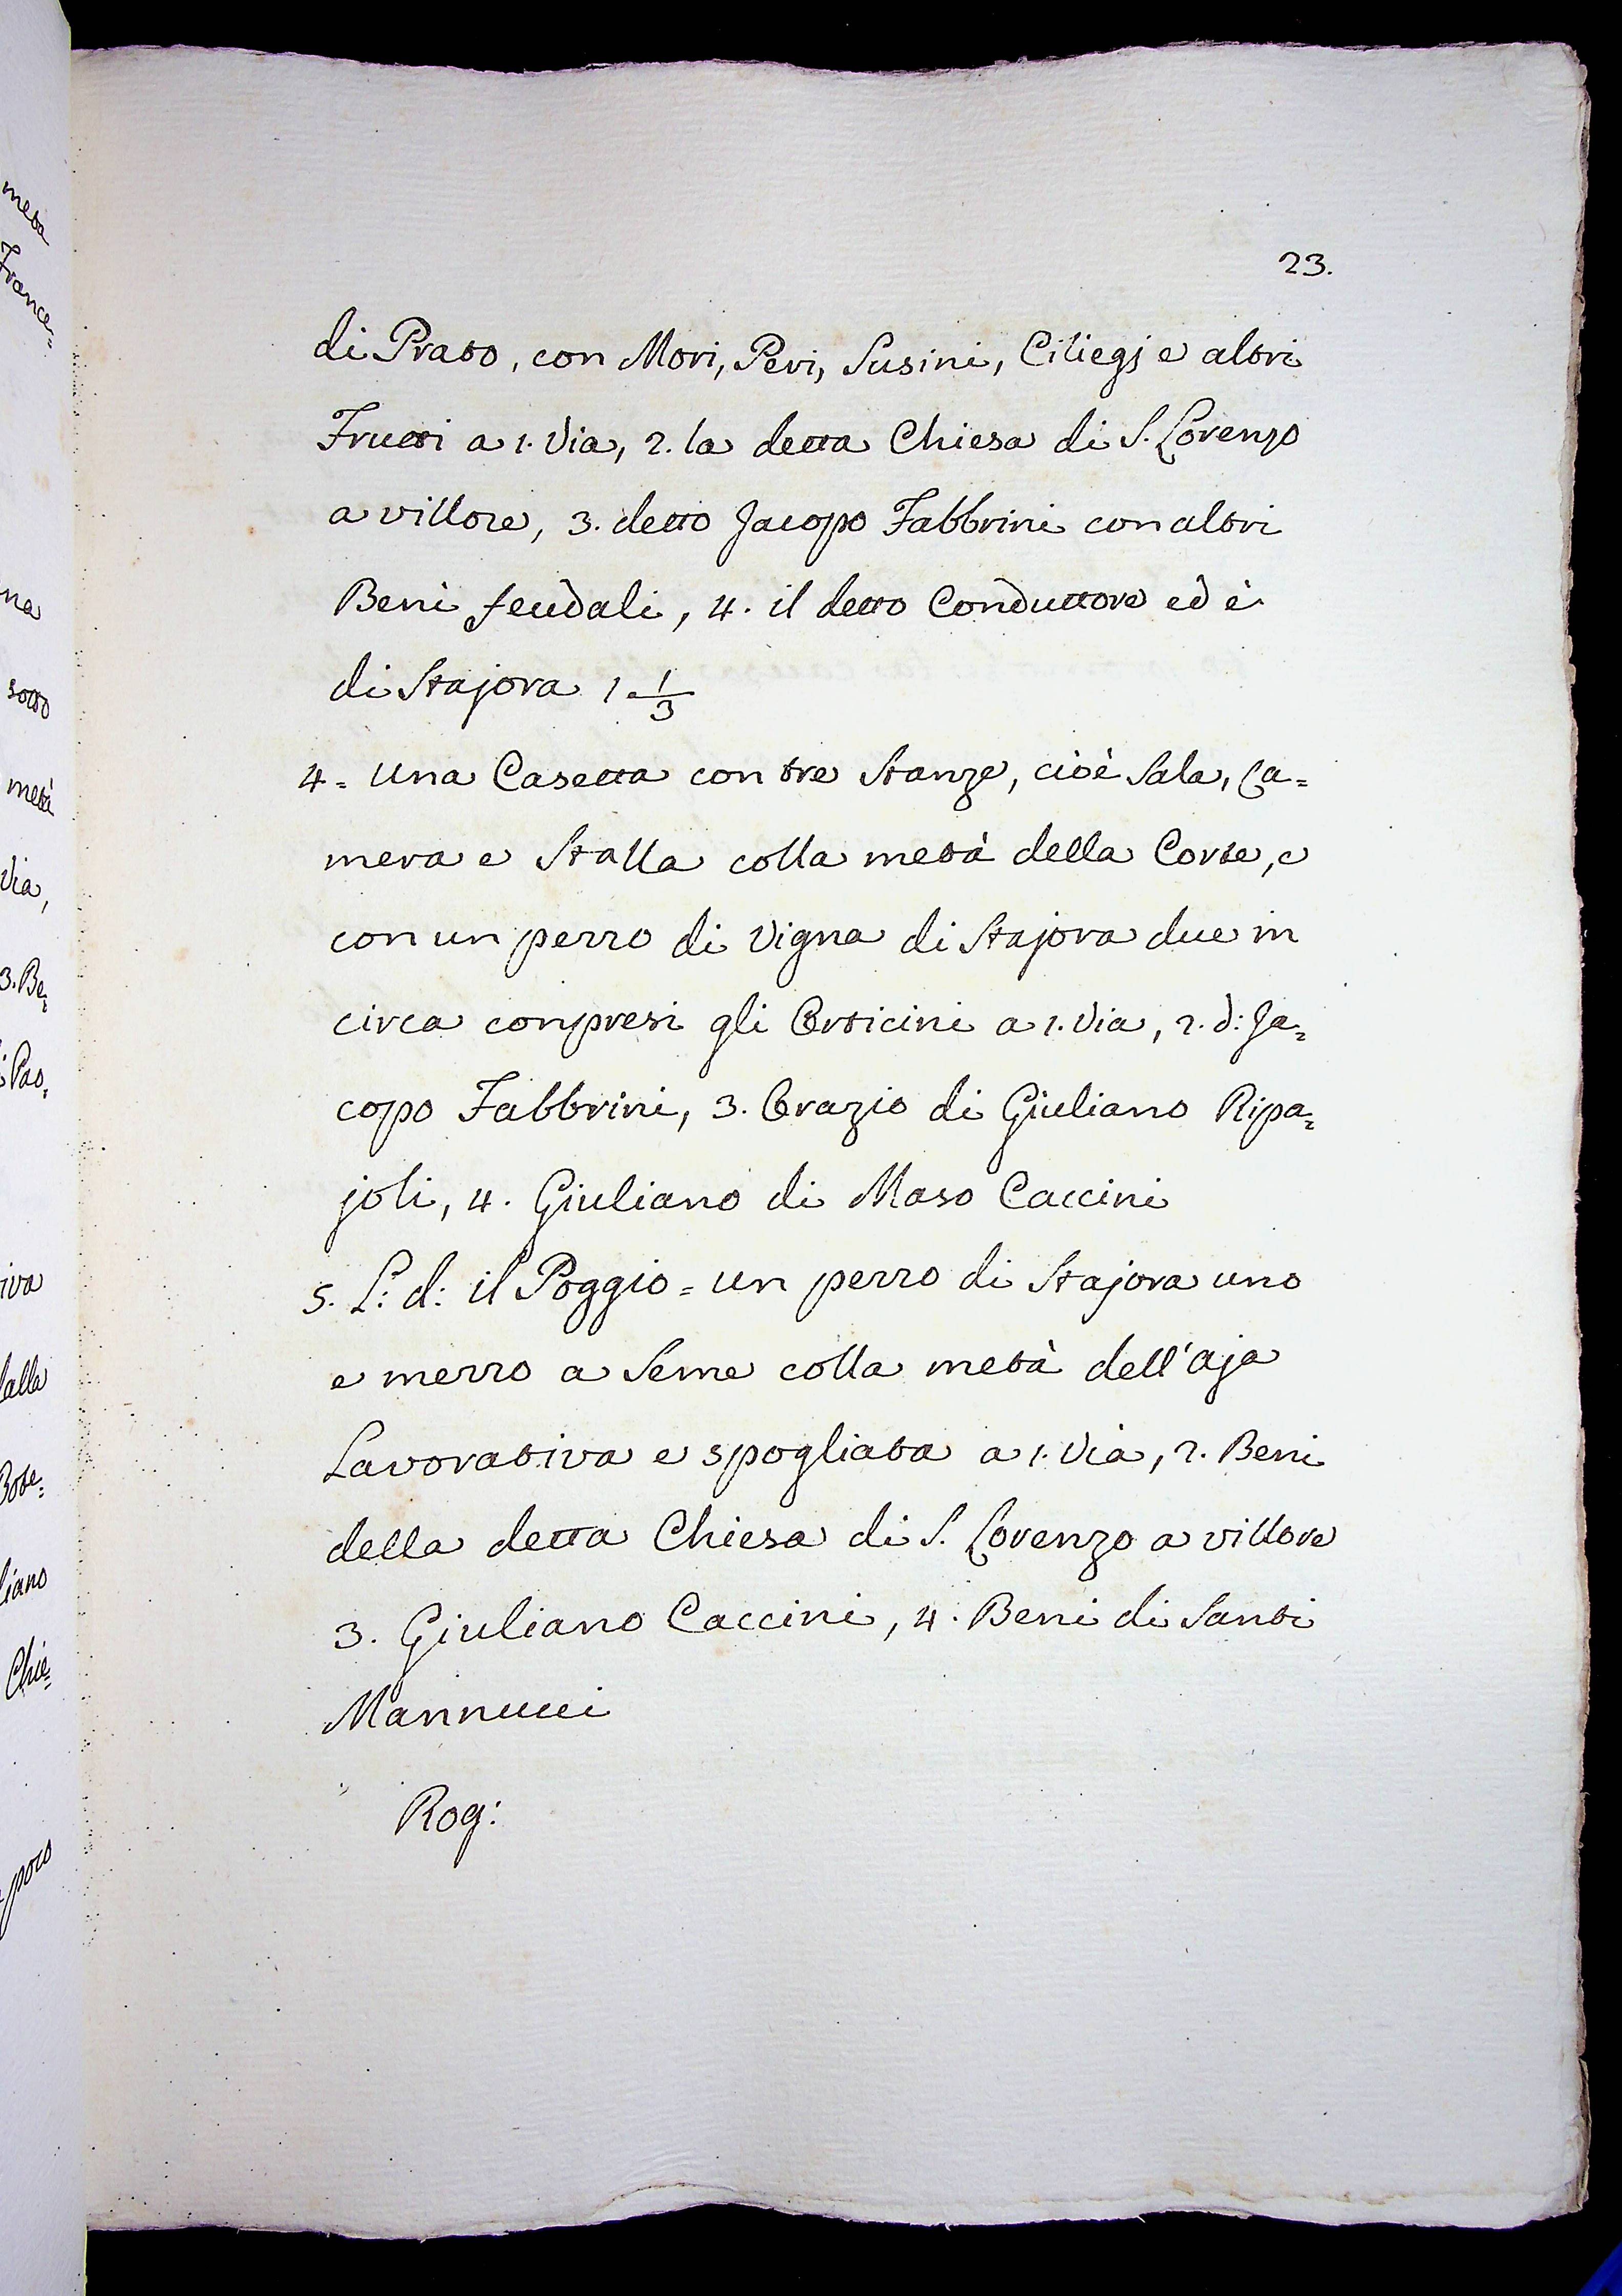 23.
di Prato, con Mori, Peri, Susini, Ciliegj e altri
Frutti a 1. Via, 2. la detta Chiesa di S. Lorenzo
a villore, 3. detto Jacopo Fabbrini con altri
Beni feudali, 4. il detto Conduttore ed è
di Stajora 1 1/3
4= Una Casetta con tre Stanze, cioè Sala, Ca=
mera e Stalla colla metà della Corte, e
con un pezzo di Vigna di Stajora due in
circa compresi gli Orticini a 1. Via, 2. d: Ja=
copo Fabbrini, 3. Orazio di Giuliano Ripa=
joli, 4. Giuliano di Maso Caccini
5. L: d: il Poggio = un pezzo di Stajora uno
e mezzo a Seme colla metà dell'aja
Lavorativa e spogliata a 1. Via, 2. Beni
della detta Chiesa di S. Lorenzo a villore
3. Giuliano Caccini, 4. Beni di Santi
Mannucci
Rog:
metà
Frances=
na
sotto
metà
Via,
3. Be=
Pao=
iva
dalla
liano
Chie=
poco